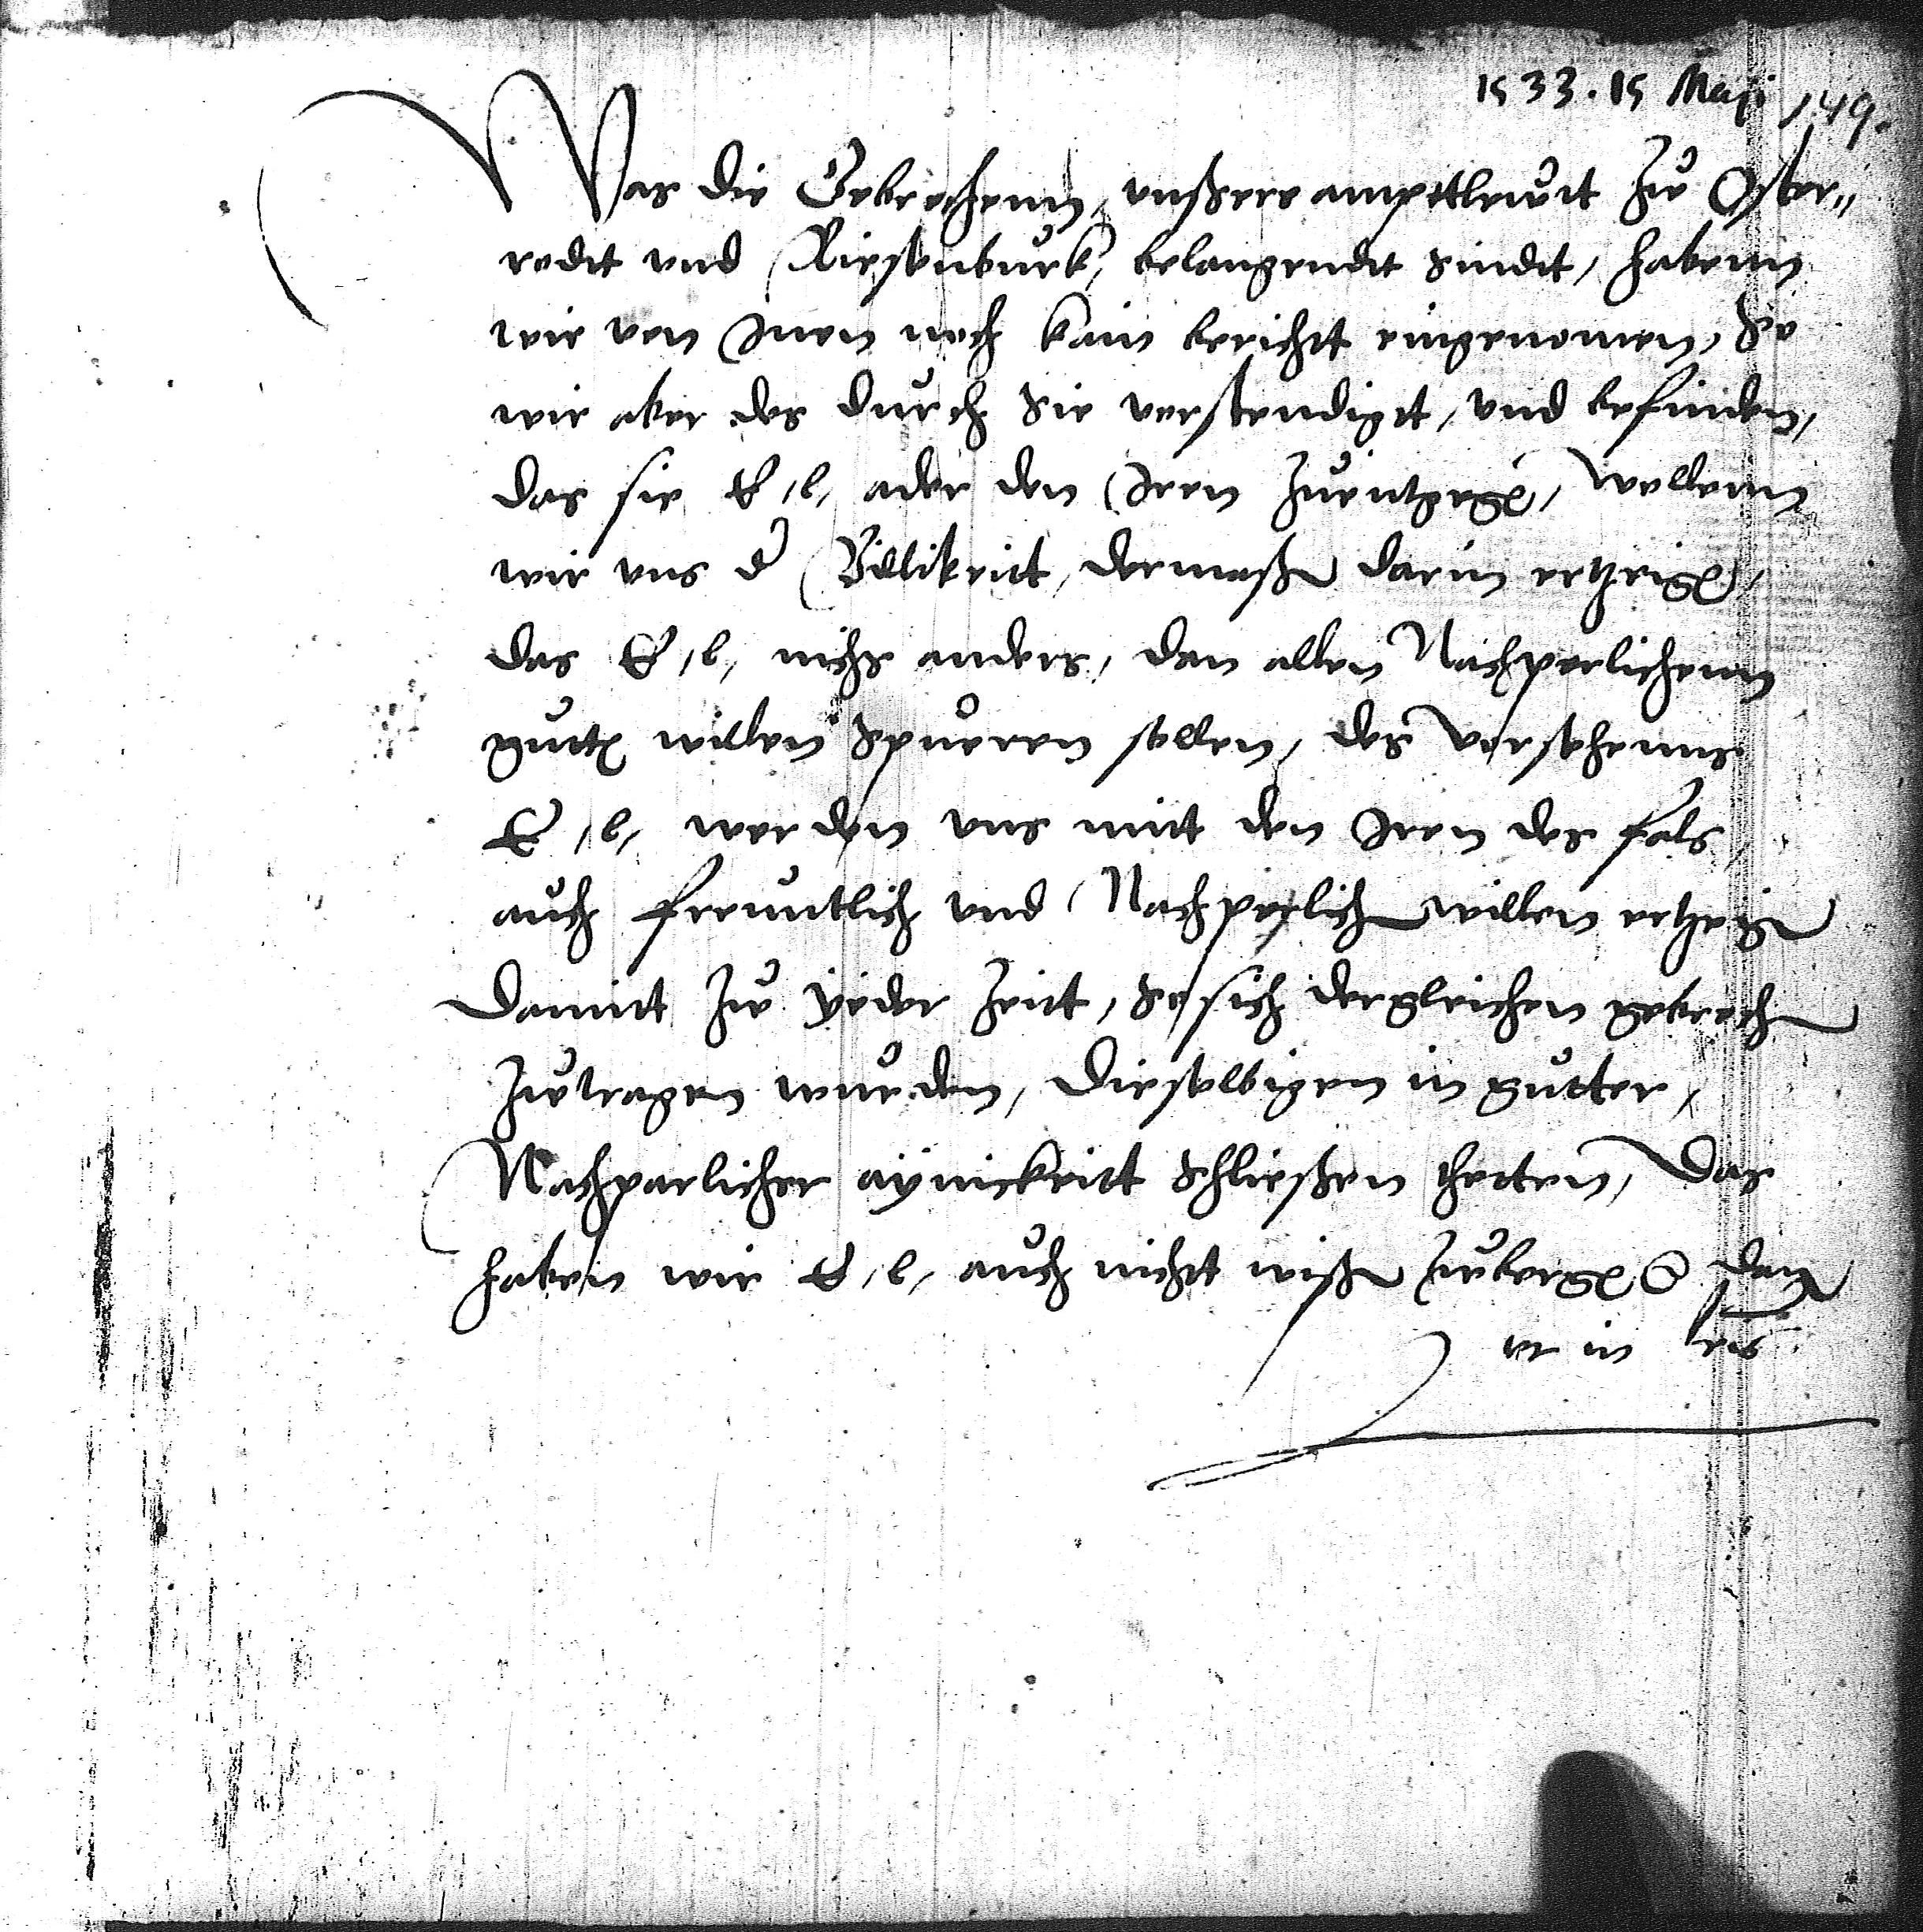 1533. 15 Maji 149.
Was die Gebrechenn, vnßere amptleutt Zu Oster„
rodt vnd Riesenburk, belangendt sindt, habenn
wir von Inen noch kain bericht eingenomen, So
wir aber des durch Sie verstendigt, vnd befinden,
das sie E, l, ader den Iren Zuentgegē, wellenn
wir vns d' Billikeitt, dermaßen darin ertzeigē,
das E, l, nichs anders, dan allen Nachperlichenn
gutē willen Spueren sollen, des versehenns
E, l, werden vns mitt den Iren des fals,
auch freuntlich vnd Nachperlichen willen ertzeigen
Damitt Zu yeder Zeitt, So sich dergleichen gebrechen
Zutragen wurden, Dieselbigen in gutter,
Nachparlicher aÿnickeitt Schließen thetten, Das
haben wir E, l, auch nicht wißen Zubergē, Dan
vt in lris